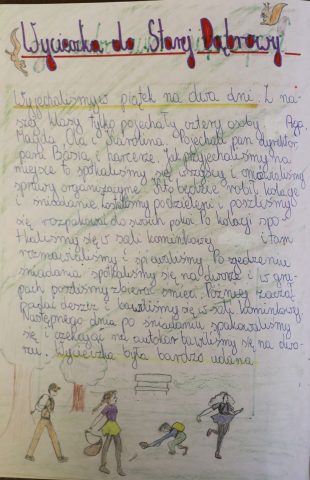 Wycieczka do Starej Dąbrowy
Wyjechaliśmy w piątek na dwa dni. Z na-
szej klasy tylko pojechały cztery osoby Aga
Magda Ola i Karolina. Pojechali pan dyrektor,
pani Basia i harcerze. Jak przyjechaliśmy na
miejsce to spotkaliśmy się wszyscy i omawialiśmy
sprawy organizacyjne. Kto będzie robił kolację
i śniadanie zostaliśmy podzieleni i poszliśmy
się rozpakować do swoich pokoi. Po kolacji spo-
tkaliśmy się w sali kominkowej i tam
rozmawialiśmy i śpiewaliśmy. Po zjedzeniu
śniadania spotkaliśmy się na dworze i w gru-
pach poszliśmy zbierać śmieci. Później zaczął
padać deszcz i bawiliśmy się w sali kominkowej.
Następnego dnia po śniadaniu spakowaliśmy
się i czekając na autokar bawiliśmy się na dwo-
rze. Wycieczka była bardzo udana.